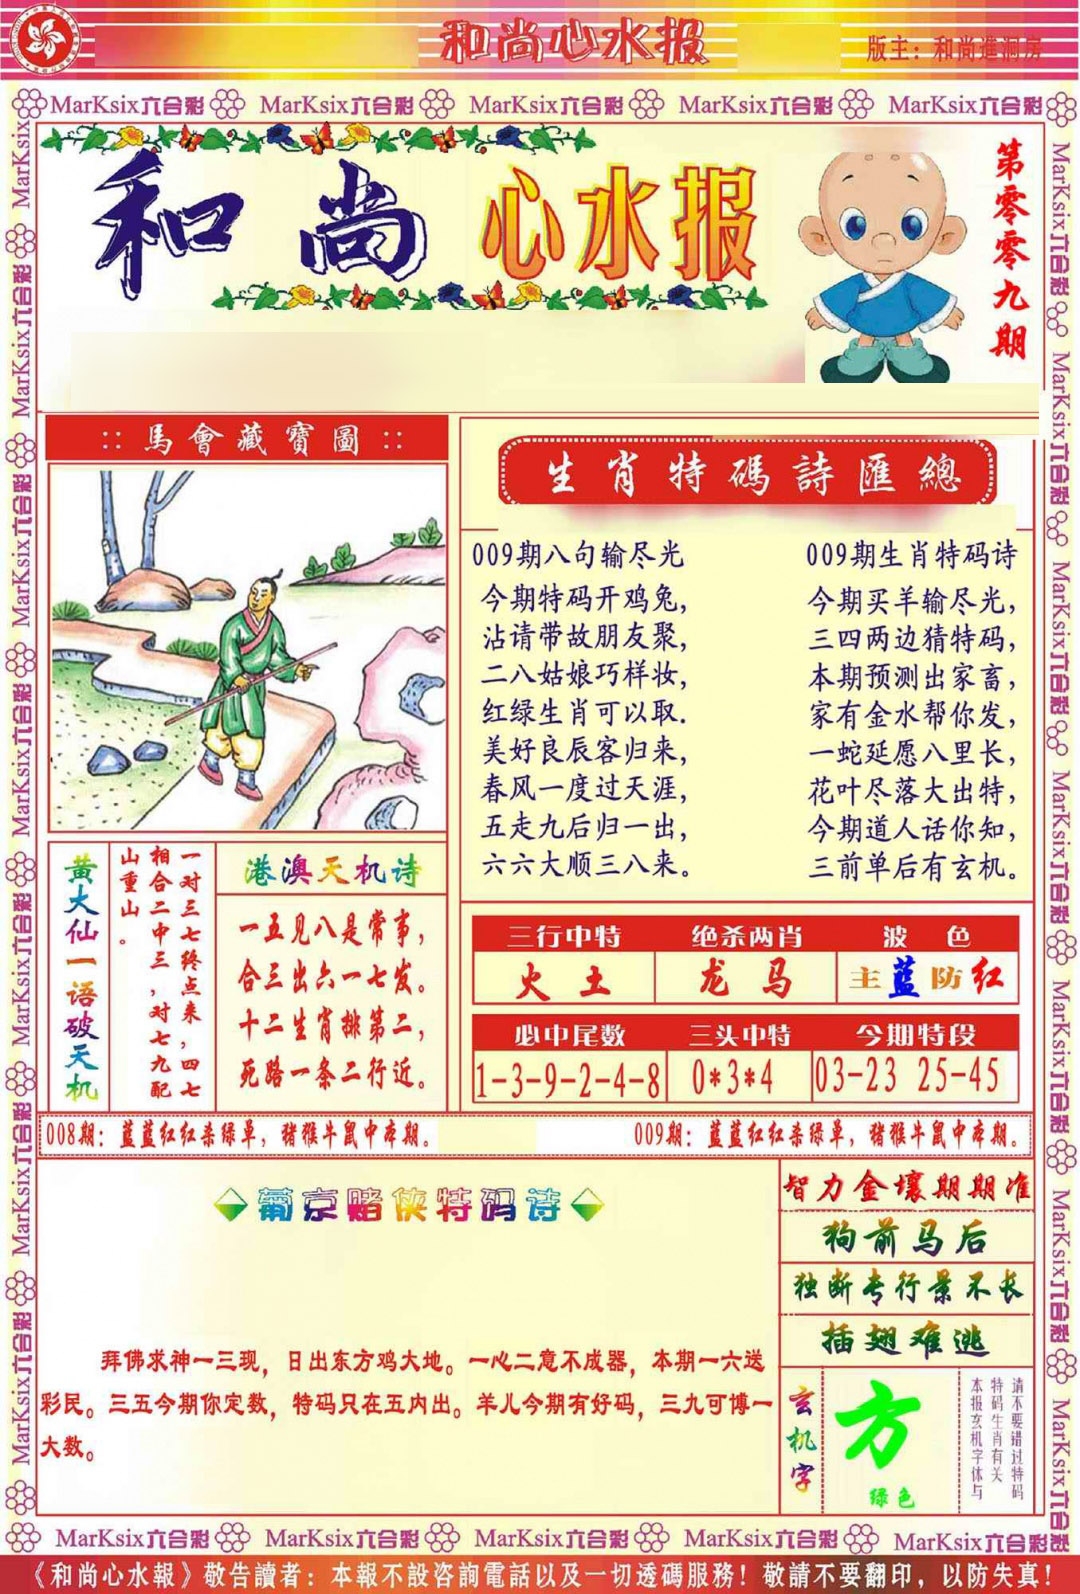 和尚心水报
版主：和尚進洞房
MarKsix六合彩 MarKsix六合彩 MarKsix六合彩 MarKsix六合彩 MarKsix六合彩
和尚心水报
第零零九期
::馬會藏寶圖::
生肖特碼詩匯總
009期八句输尽光
今期特码开鸡兔，
沾请带故朋友聚，
二八姑娘巧样妆，
红绿生肖可以取.
美好良辰客归来，
春风一度过天涯，
五走九后归一出，
六六大顺三八来。
009期生肖特码诗
今期买羊输尽光，
三四两边猜特码，
本期预测出家畜，
家有金水帮你发，
一蛇延愿八里长，
花叶尽落大出特，
今期道人话你知，
三前单后有玄机。
黄大仙一语破天机
一对三七终点来，四七
相合二中三，对七九配
山重山。
港澳天机诗
一五见八是常事，
合三出六一七发。
十二生肖排第二，
死路一条二行近。
三行中特 绝杀两肖 波色
火土 龙马 主蓝防红
必中尾数 三头中特 今期特段
1-3-9-2-4-8 0*3*4 03-23 25-45
008期：蓝蓝红红杀绿单，猪猴牛鼠中本期。
009期：蓝蓝红红杀绿单，猪猴牛鼠中本期。
葡京赌侠特码诗
拜佛求神一三现，日出东方鸡大地。一心二意不成器，本期一六送
彩民。三五今期你定数，特码只在五内出。羊儿今期有好码，三九可博一
大数。
智力金壤期期准
狗前马后
独断专行景不长
插翅难逃
玄机字
方
绿色
请不要错过特码
特码生肖有关
本报玄机字体与
MarKsix六合彩 MarKsix六合彩 MarKsix六合彩 MarKsix六合彩 MarKsix六合彩
《和尚心水報》敬告讀者：本報不設咨詢電話以及一切透碼服務！敬請不要翻印，以防失真！